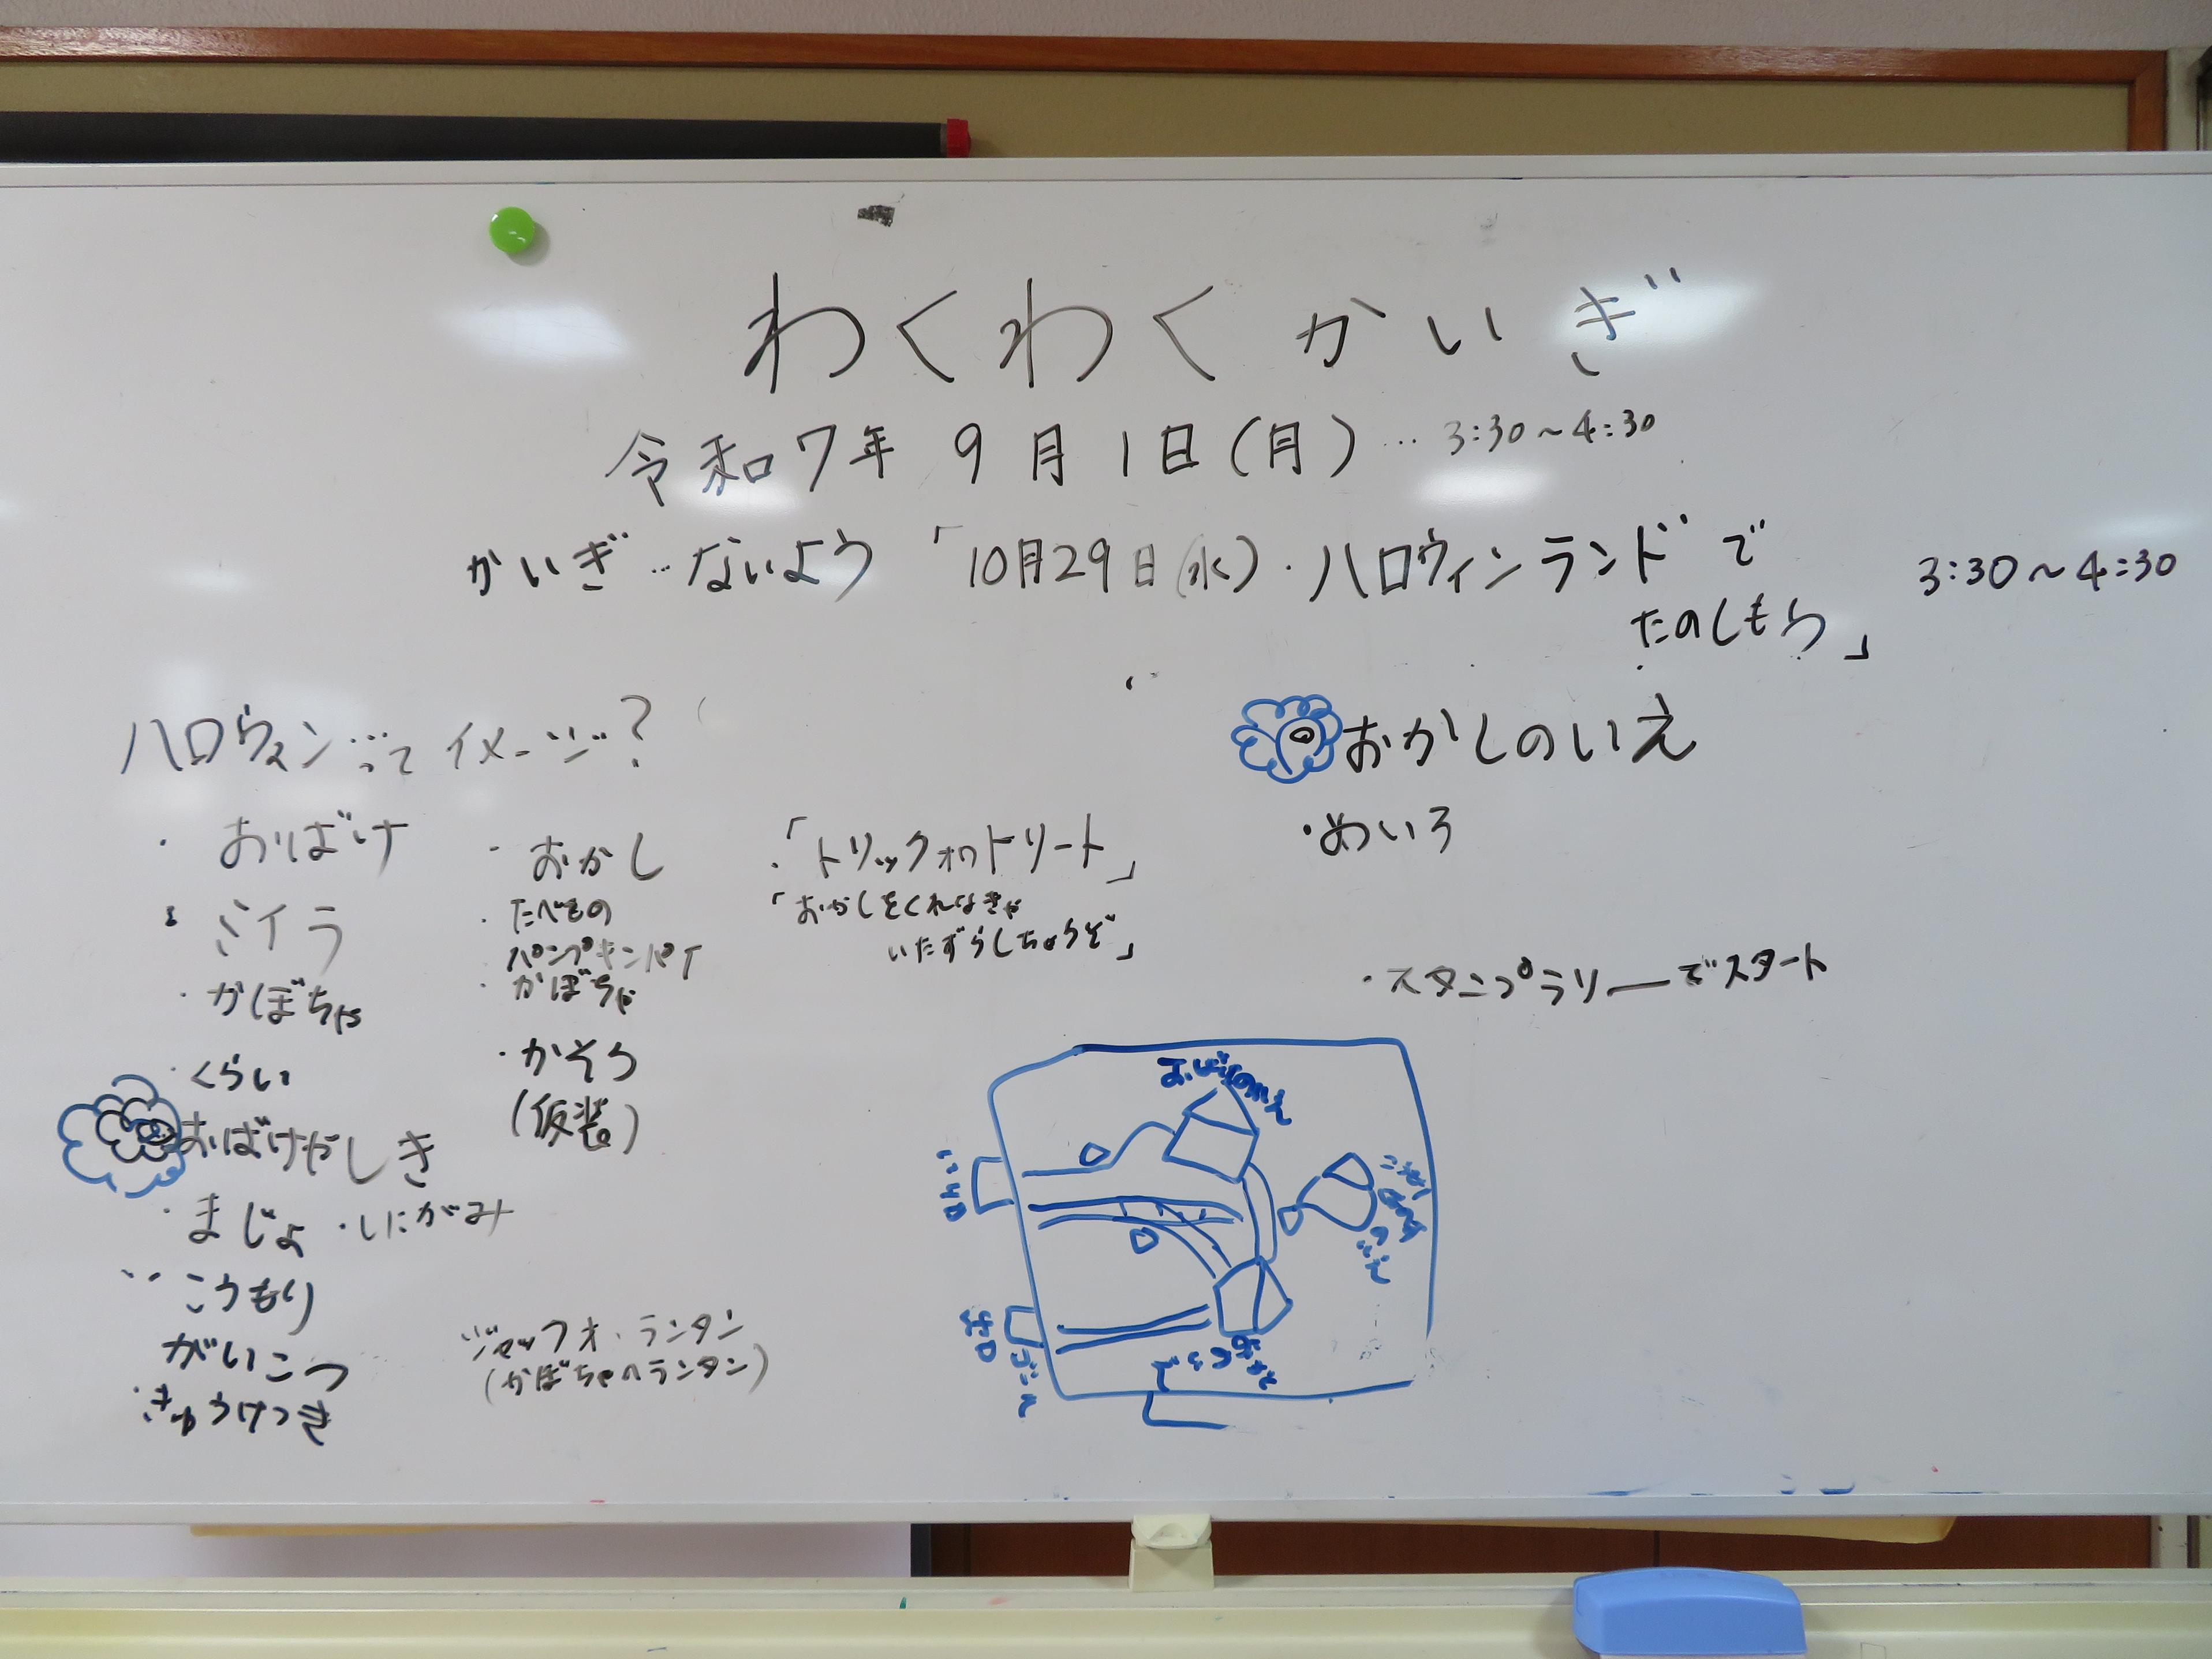 わくわくかいぎ
令和7年 9月1日(月)…3:30〜4:30
かいぎ…ないよう「10月29日(水)・ハロウィンランドで
たのしもう」
3:30〜4:30
ハロウィン…って イメージ?
・おばけ
・ミイラ
・かぼちゃ
・くらい
おばけやしき
・まじょ ・しにがみ
・こうもり
がいこつ
・きゅうけつき
・おかし
・たべもの
パンプキンパイ
・かぼちゃ
・かそう
(仮装)
ジャックオ・ランタン
(かぼちゃのランタン)
・「トリックオアトリート」
「おかしをくれなきゃ
いたずらしちゃうぞ」
おかしのいえ
・めいろ
・スタンプラリーでスタート